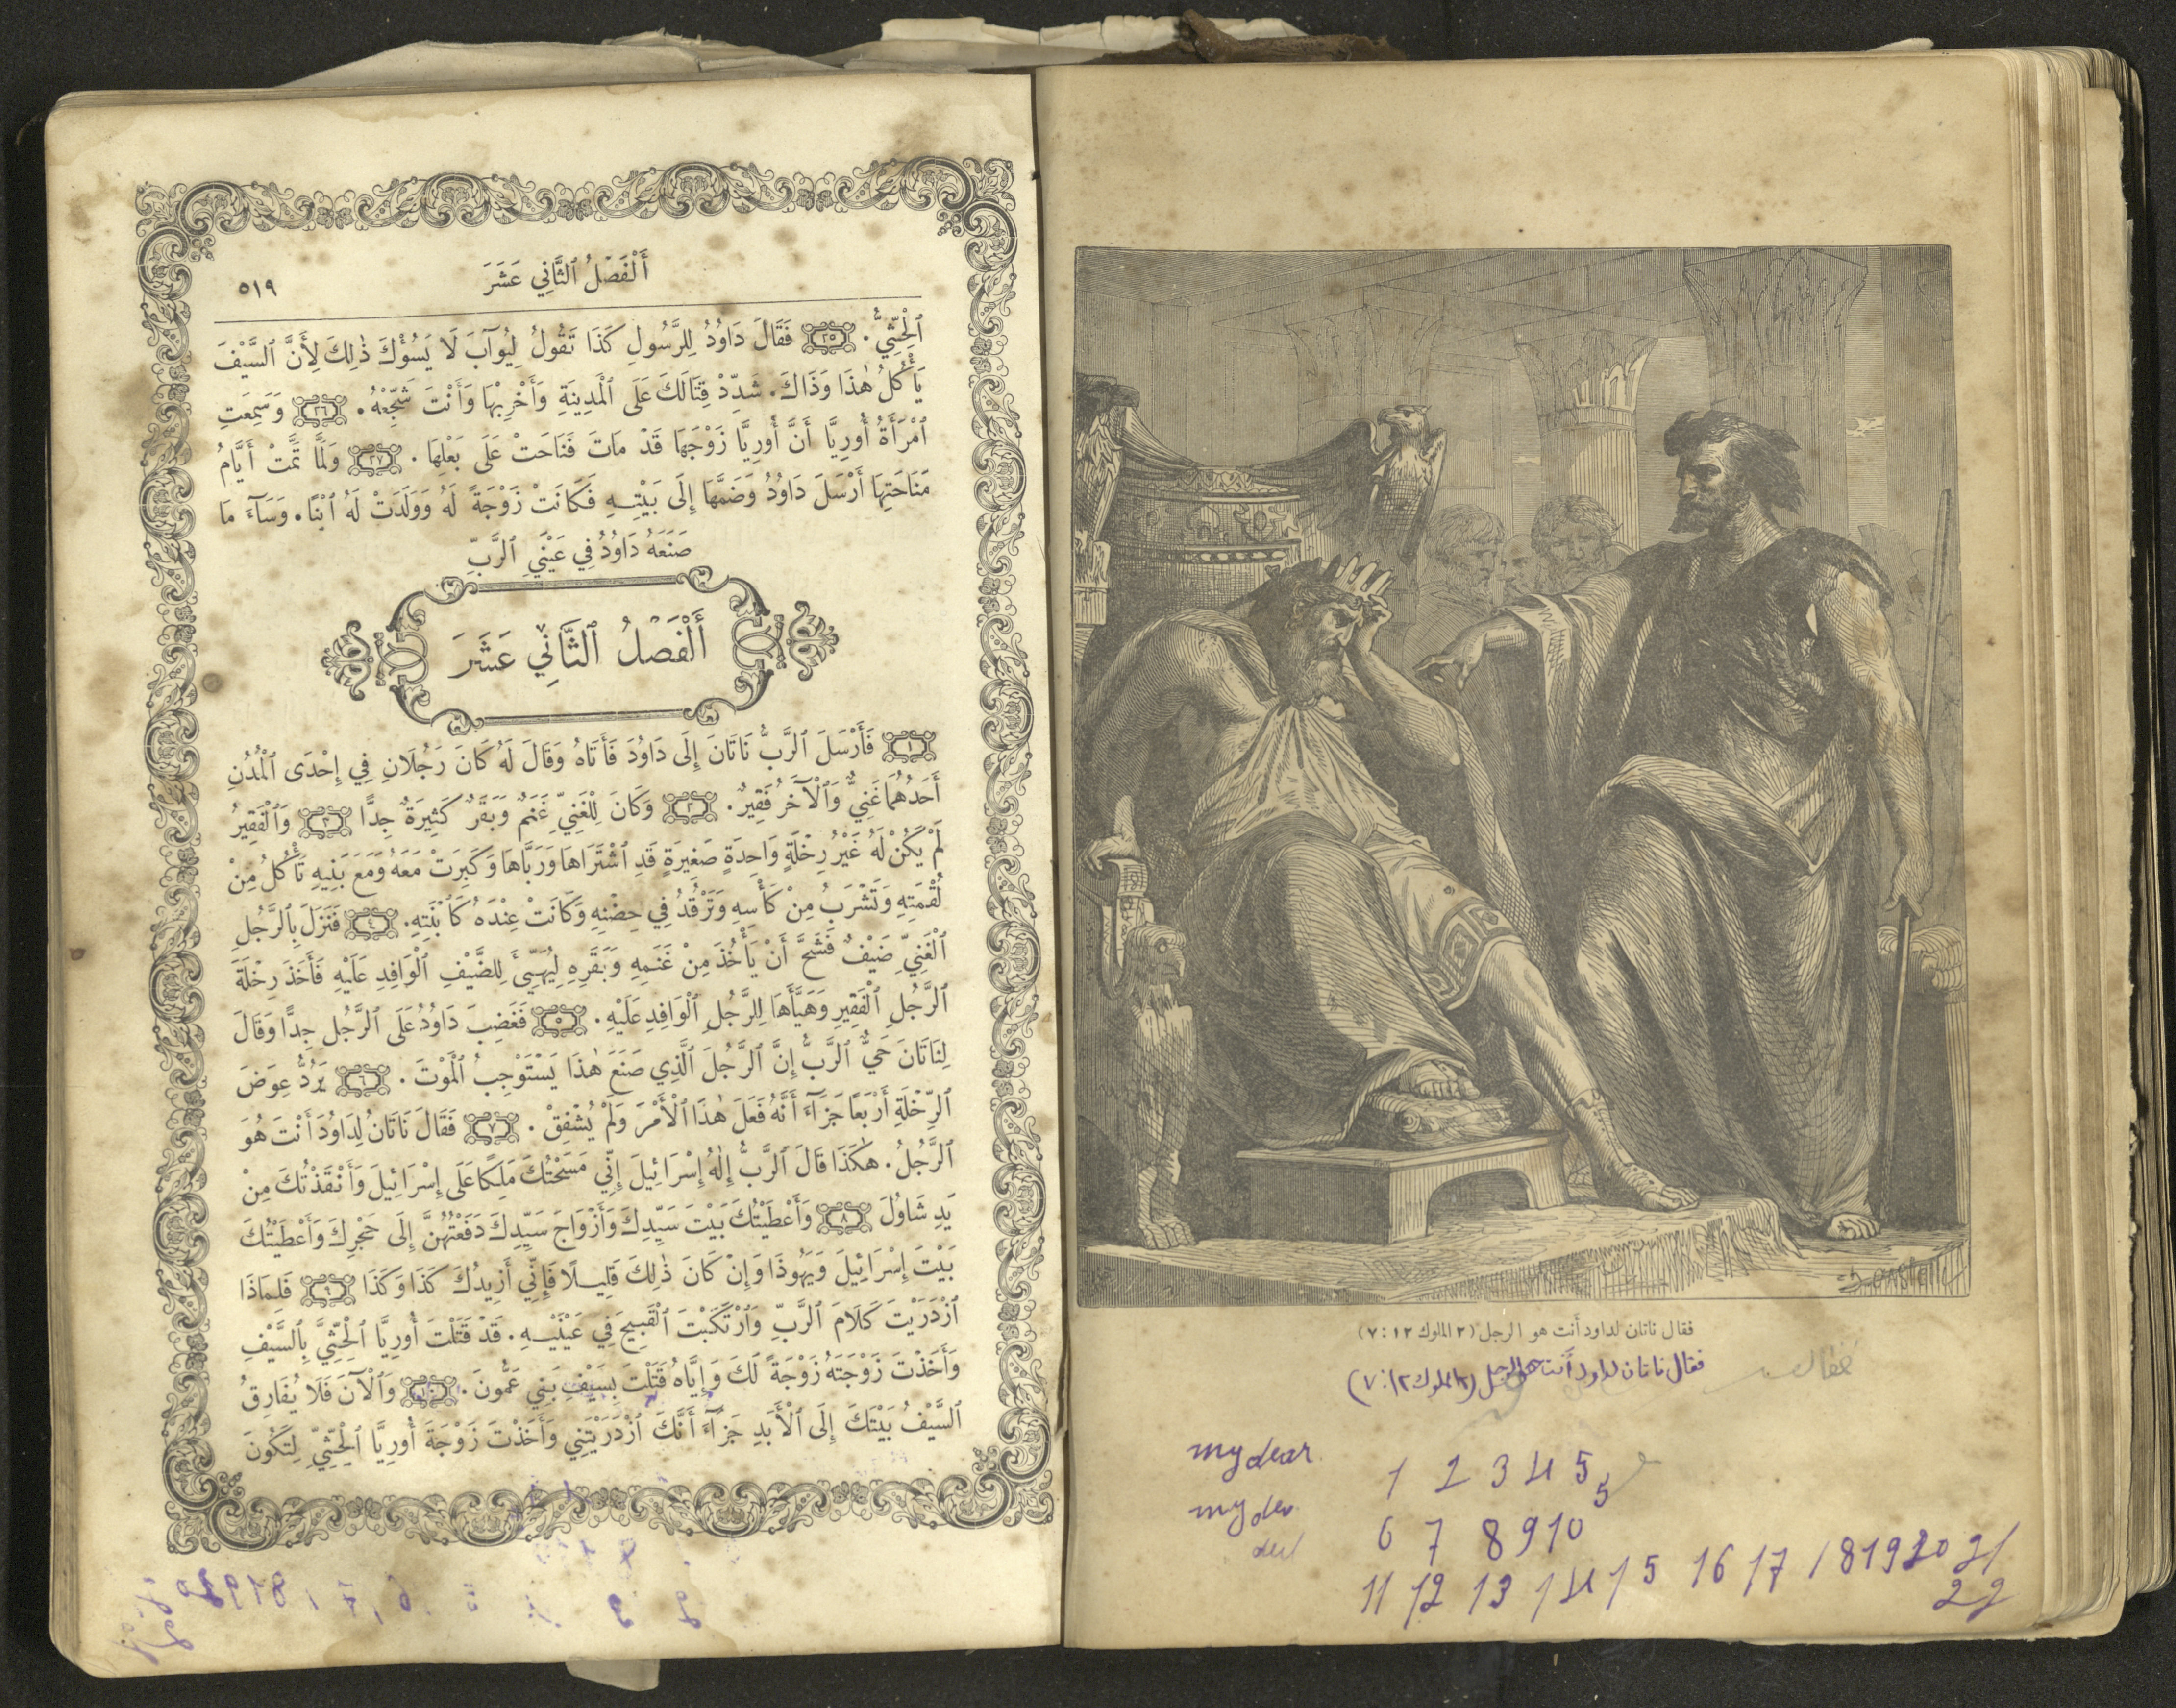 أَلْفَصْلُ ٱلثَّانِي عَشَرَ ٥١٩
ٱلْحِثِّيُّ. ٢٥ فَقَالَ دَاوُدُ لِلرَّسُولِ كَذَا تَقُولُ لِيُوآبَ لَا يَسُؤْكَ ذٰلِكَ لِأَنَّ ٱلسَّيْفَ
يَأْكُلُ هٰذَا وَذَاكَ. شَدِّدْ قِتَالَكَ عَلَى ٱلْمَدِينَةِ وَأَخْرِبْهَا وَأَنْتَ شَجِّعْهُ. ٢٦ وَسَمِعَتِ
ٱمْرَأَةُ أُورِيَّا أَنَّ أُورِيَّا زَوْجَهَا قَدْ مَاتَ فَنَاحَتْ عَلَى بَعْلِهَا. ٢٧ وَلَمَّا تَمَّتْ أَيَّامُ
مَنَاحَتِهَا أَرْسَلَ دَاوُدُ وَضَمَّهَا إِلَى بَيْتِهِ فَكَانَتْ زَوْجَةً لَهُ وَوَلَدَتْ لَهُ ٱبْنًا. وَسَآءَ مَا
صَنَعَهُ دَاوُدُ فِي عَيْنَيِ ٱلرَّبِّ
أَلْفَصْلُ ٱلثَّانِي عَشَرَ
١ فَأَرْسَلَ ٱلرَّبُّ نَاتَانَ إِلَى دَاوُدَ فَأَتَاهُ وَقَالَ لَهُ كَانَ رَجُلَانِ فِي إِحْدَى ٱلْمُدُنِ
أَحَدُهُمَا غَنِيٌّ وَٱلْآخَرُ فَقِيرٌ. ٢ وَكَانَ لِلْغَنِيِّ غَنَمٌ وَبَقَرٌ كَثِيرَةٌ جِدًّا ٣ وَٱلْفَقِيرُ
لَمْ يَكُنْ لَهُ غَيْرُ رِخْلَةٍ وَاحِدَةٍ صَغِيرَةٍ قَدِ ٱشْتَرَاهَا وَرَبَّاهَا وَكَبِرَتْ مَعَهُ وَمَعَ بَنِيهِ تَأْكُلُ مِنْ
لُقْمَتِهِ وَتَشْرَبُ مِنْ كَأْسِهِ وَتَرْقُدُ فِي حِضْنِهِ وَكَانَتْ عِنْدَهُ كَٱبْنَتِهِ. ٤ فَنَزَلَ بِٱلرَّجُلِ
ٱلْغَنِيِّ ضَيْفٌ فَشَحَّ أَنْ يَأْخُذَ مِنْ غَنَمِهِ وَبَقَرِهِ لِيُهَيِّئَ لِلضَّيْفِ ٱلْوَافِدِ عَلَيْهِ فَأَخَذَ رِخْلَةَ
ٱلرَّجُلِ ٱلْفَقِيرِ وَهَيَّأَهَا لِلرَّجُلِ ٱلْوَافِدِ عَلَيْهِ. ٥ فَغَضِبَ دَاوُدُ عَلَى ٱلرَّجُلِ جِدًّا وَقَالَ
لِنَاتَانَ حَيٌّ ٱلرَّبُّ إِنَّ ٱلرَّجُلَ ٱلَّذِي صَنَعَ هٰذَا يَسْتَوْجِبُ ٱلْمَوْتَ. ٦ يَرُدُّ عِوَضَ
ٱلرِّخْلَةِ أَرْبَعًا جَزَآءَ أَنَّهُ فَعَلَ هٰذَا ٱلْأَمْرَ وَلَمْ يُشْفِقْ. ٧ فَقَالَ نَاتَانُ لِدَاوُدَ أَنْتَ هُوَ
ٱلرَّجُلُ. هٰكَذَا قَالَ ٱلرَّبُّ إِلٰهُ إِسْرَائِيلَ إِنِّي مَسَحْتُكَ مَلِكًا عَلَى إِسْرَائِيلَ وَأَنْقَذْتُكَ مِنْ
يَدِ شَاوُلَ ٨ وَأَعْطَيْتُكَ بَيْتَ سَيِّدِكَ وَأَزْوَاجَ سَيِّدِكَ دَفَعْتُهُنَّ إِلَى حَجْرِكَ وَأَعْطَيْتُكَ
بَيْتَ إِسْرَائِيلَ وَيَهُوذَا وَإِنْ كَانَ ذٰلِكَ قَلِيلًا فَإِنِّي أَزِيدُكَ كَذَا وَكَذَا ٩ فَلِمَاذَا
ٱزْدَرَيْتَ كَلَامَ ٱلرَّبِّ وَٱرْتَكَبْتَ ٱلْقَبِيحَ فِي عَيْنَيْهِ. قَدْ قَتَلْتَ أُورِيَّا ٱلْحِثِّيَّ بِٱلسَّيْفِ
وَأَخَذْتَ زَوْجَتَهُ زَوْجَةً لَكَ وَإِيَّاهُ قَتَلْتَ بِسَيْفِ بَنِي عَمُّونَ. ١٠ وَٱلْآنَ فَلَا يُفَارِقُ
ٱلسَّيْفُ بَيْتَكَ إِلَى ٱلْأَبَدِ جَزَآءَ أَنَّكَ ٱزْدَرَيْتَنِي وَأَخَذْتَ زَوْجَةَ أُورِيَّا ٱلْحِثِّيِّ لِتَكُونَ
فقال ناتان لداود أنت هو الرجل (٢ الملوك ١٢ : ٧)
فقال ناتان لداود أنت هو الرجل (٢ الملوك ١٢ : ٧)
my dear 1 2 3 4 5
5
my der 6 7 8 9 10
11 12 13 14 15 16 17 18 19 20 21
22